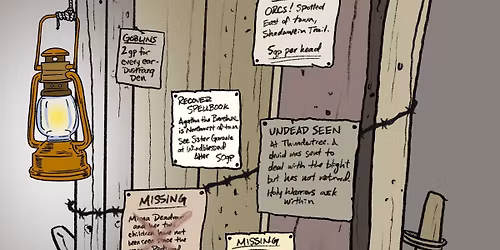 GOBLINS
2gp for
every ear-
Den
ORCS! Spotted
East of town,
Trail.
5gp per head
RECOVER
SPELLBOOK
Agatha the Banshee
is Northwest of town
See Sister Garaele
at
Alter 50gp
UNDEAD SEEN
At Thundertree. A
druid was sent to
deal with the blight
but has not returned.
Holy Warriors ask
Within
MISSING
and her two
children have not
been seen since the
MISSING